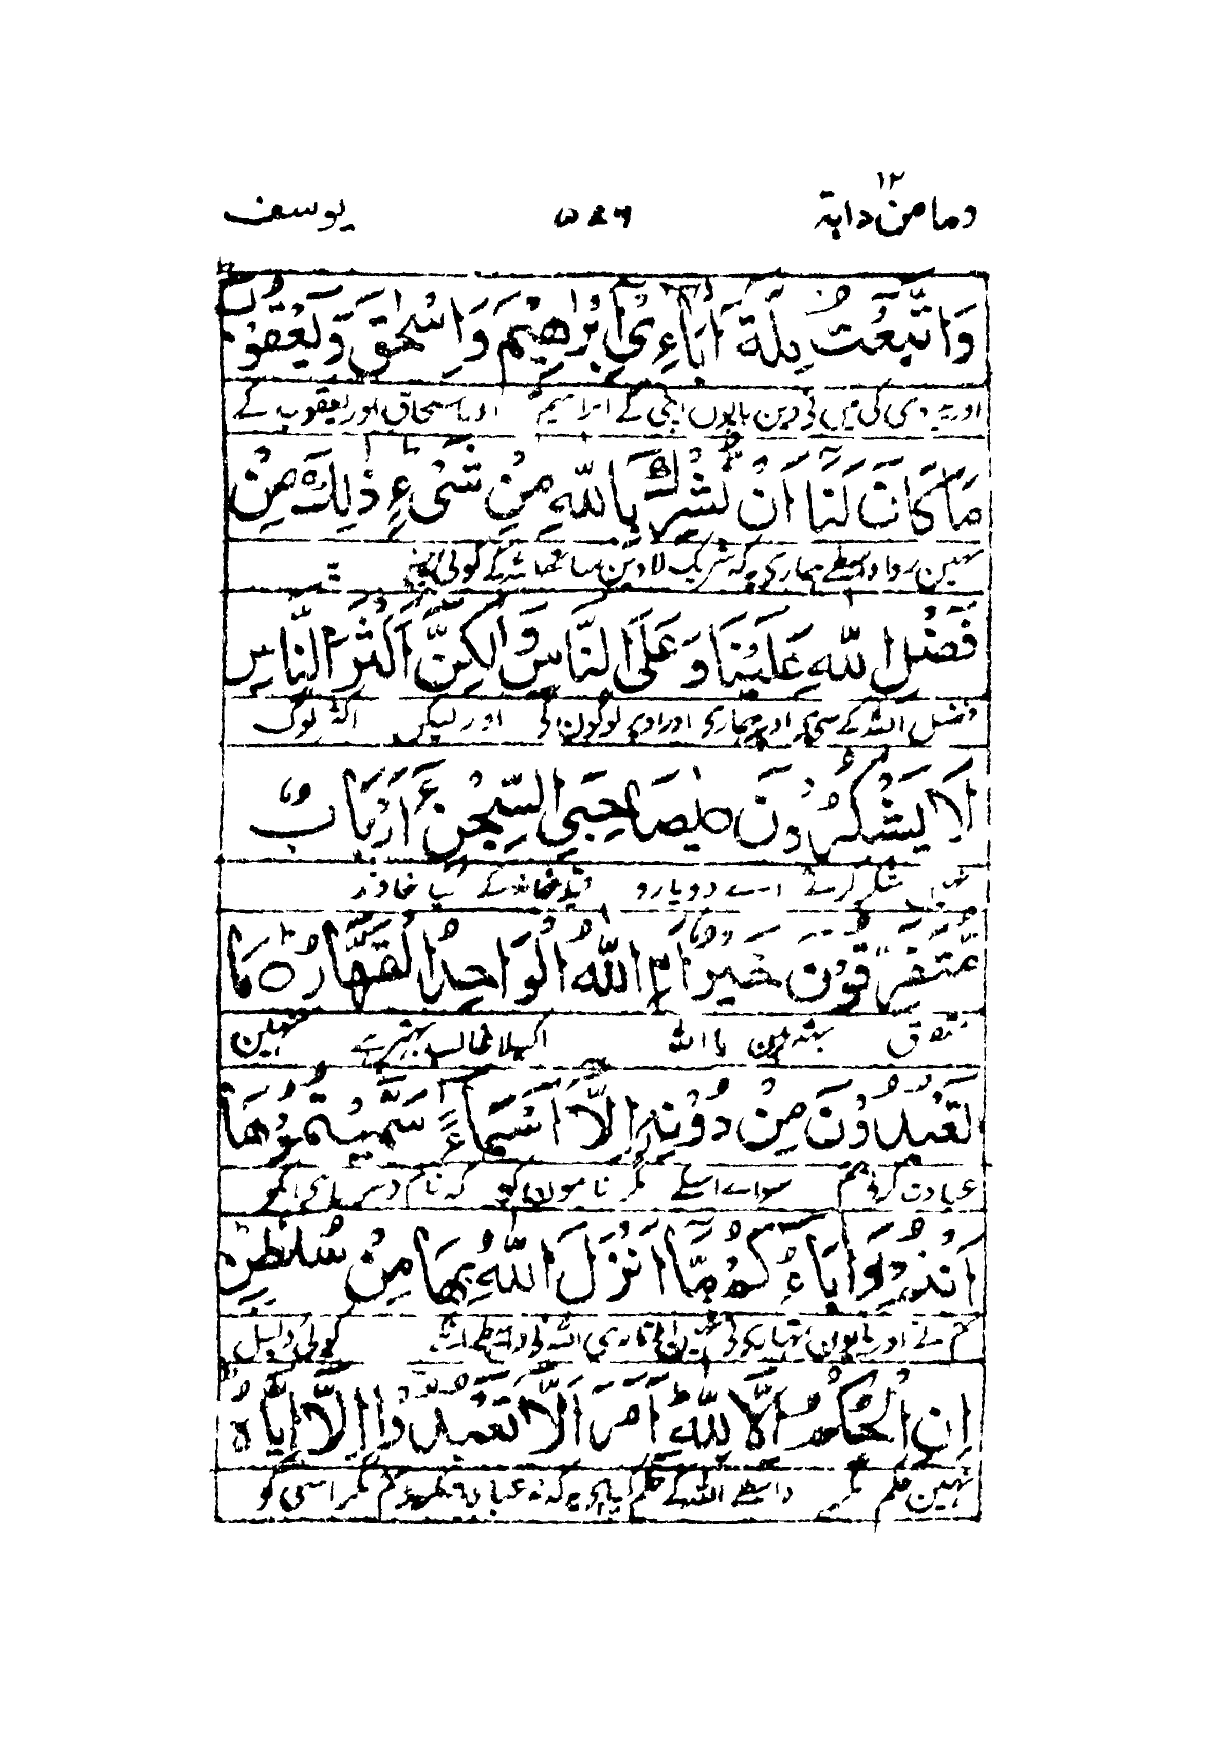 وما من دابة ١٢ ٥٤٦ يوسف
وَاتَّبَعْتُ مِلَّةَ اٰبَآءِيْٓ اِبْرٰهِيْمَ وَاِسْحٰقَ وَيَعْقُوْبَ
اور پیروی کی میں نی دین باپوں اپنی کے ابراہیم اور اسحاق اور یعقوب کے
مَا كَانَ لَنَآ اَنْ نُّشْرِكَ بِاللّٰهِ مِنْ شَيْءٍ ذٰلِكَ مِنْ
نہین روا واسطے ہماری یہ کہ شریک لاوین ساتھ اللہ کے کوئی چیز یہ
فَضْلِ اللّٰهِ عَلَيْنَا وَعَلَى النَّاسِ وَلٰكِنَّ اَكْثَرَ النَّاسِ
فضل اللہ کے سی ہی اوپر ہماری اور اوپر لوگون کی اور لیکن اکثر لوگ
لَا يَشْكُرُوْنَ يٰصَاحِبَيِ السِّجْنِ ءَاَرْبَابٌ
نہیں شکر کرتے اے دو یارو قید خانہ کے کیا خاوند
مُّتَفَرِّقُوْنَ خَيْرٌ اَمِ اللّٰهُ الْوَاحِدُ الْقَهَّارُ مَا
متفرق بہتر ہین یا اللہ اکیلا غالب بہتر ہے نہین
تَعْبُدُوْنَ مِنْ دُوْنِهٖٓ اِلَّآ اَسْمَآءً سَمَّيْتُمُوْهَآ
عبادت کرتی تم سوائے اسکے مگر نامون کو کہ نام
اَنْتُمْ وَاٰبَآؤُكُمْ مَّآ اَنْزَلَ اللّٰهُ بِهَا مِنْ سُلْطٰنٍ
تم نے اور باپون تمہاری نی نہین اتاری اللہ نی واسطے اسکے کوئی دلیل
اِنِ الْحُكْمُ اِلَّا لِلّٰهِ اَمَرَ اَلَّا تَعْبُدُوْٓا اِلَّآ اِيَّاهُ
نہین حکم مگر واسطے اللہ کے حکم کیا ہی یہ کہ نہ عبادت کرو تم مگر اسی کو